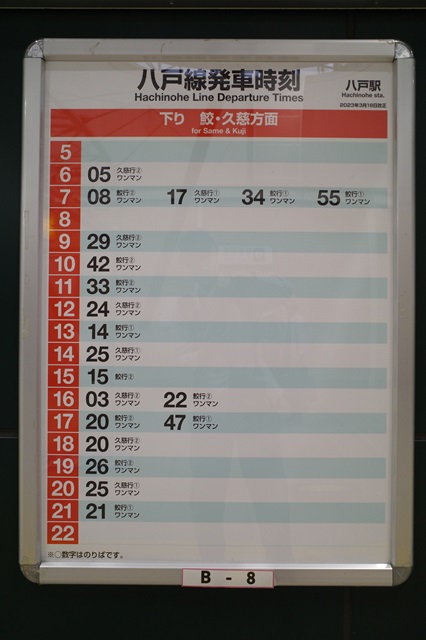 八戸線発車時刻
Hachinohe Line Departure Times
八戸駅
Hachinohe sta.
2023年3月18日改正
下り 鮫・久慈方面
for Same & Kuji
5
6 05 久慈行② ワンマン
7 08 鮫行② ワンマン 17 久慈行① ワンマン 34 鮫行① ワンマン 55 鮫行① ワンマン
8
9 29 久慈行② ワンマン
10 42 鮫行② ワンマン
11 33 鮫行② ワンマン
12 24 久慈行② ワンマン
13 14 鮫行① ワンマン
14 25 久慈行① ワンマン
15 15 鮫行②
16 03 久慈行② ワンマン 22 鮫行② ワンマン
17 20 鮫行② ワンマン 47 鮫行① ワンマン
18 20 久慈行② ワンマン
19 26 鮫行② ワンマン
20 25 久慈行① ワンマン
21 21 鮫行① ワンマン
22
※○数字はのりばです。
B - 8